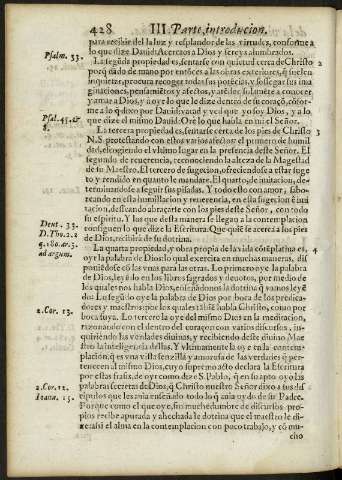 428 III. Parte, introducion.
para recibir del la luz y resplandor de las virtudes, conforme a
Psalm. 33.
lo que dize Dauid: Acercaos a Dios y sereys alumbrados.
La segũda propiedad es, sentarse con quietud cerca de Christo 2
porq̃ dado de mano por entõces a las obras exteriores, q̃ suelen
inquietar, procura recoger todas sus potẽcias, y sossegar sus ima
ginaciones, pensamiẽtos y afectos, vacãdo solamẽte a conocer
y amar a Dios, y a oyr lo que le dize dentro de su coraçõ, cõfor-
Psal. 45. &
8.
me a lo q̃ dixo por Dauid: vacad y ved que yo soy Dios, y a lo
que dize el mismo Dauid: Oyre lo que habla en mi el Señor.
La tercera propiedad es, sentarse cerca de los pies de Christo 3
N. S. protestando con estos varios afectos: el primero de humil
dad, escogiendo el vltimo lugar en la presencia deste Señor. El
segundo de reuerencia, reconociendo la alteza de la Magestad
de su Maestro. El tercero de sugecion, ofreciendose a estar suge-
to y rendido en quanto le mandare. El quarto, de imitacion, de-
terminandose a seguir sus pisadas. Y todo esto con amor, sabo-
reando en esta humillacion y reuerencia, en esta sugecion è imi
tacion, desseando abraçarse con los pies deste Señor, con todo
su espiritu. Y los que desta manera se llegan a la contemplacion
Deut. 33.
D. Tho. 2. 2
q. 180. ar. 3.
ad argum.
consiguen lo que dize la Escritura. Que quiẽ se acerca a los pies
de Dios, recibira de su dotrina.
La quarta propiedad, y obra propia de la vida cõtẽplatiua es, 4
oyr la palabra de Dios: lo qual exercita en muchas maneras, dis
poniẽdose cõ las vnas para las otras. Lo primero oye la palabra
de Dios, leyẽdo en los libros sagrados y deuotos, por medio de
los quales nos habla Dios, enseñãdonos la dotrina q̃ vamos leyẽ
do: Lo segũdo oye la palabra de Dios por boca de los predica-
dores y maestros: por los quales tãbiẽ habla Christo, como por
2. Cor. 13.
boca suya. Lo tercero la oye del mismo Dios en la meditacion,
razonando con el dentro del coraçon con varios discursos, in-
quiriendo las verdades diuinas, y recibiendo deste diuino Mae
stro la inteligencia dellas. Y vltimamente la oye en la contem-
placion, q̃ es vna vista senzilla y amorosa de las verdades q̃ per-
tenecen al mismo Dios, cuyo supremo acto declara la Escritura
2. Cor. 12.
por estas frasis, de oyr como dize S. Pablo, q̃ en su rapto oyo las
palabras secretas de Dios, q̃ Christo nuestro Señor dixo a sus dis
Ioann. 15.
cipulos que les auia enseñado todo lo q̃ auia oydo de su Padre.
Porque como el que oye, sin muchedumbre de discursos propios
recibe apurada y alechada la dotrina que el maestro le di-
ze: assi el alma en la contemplacion con poco trabajo, y cõ mu
cho